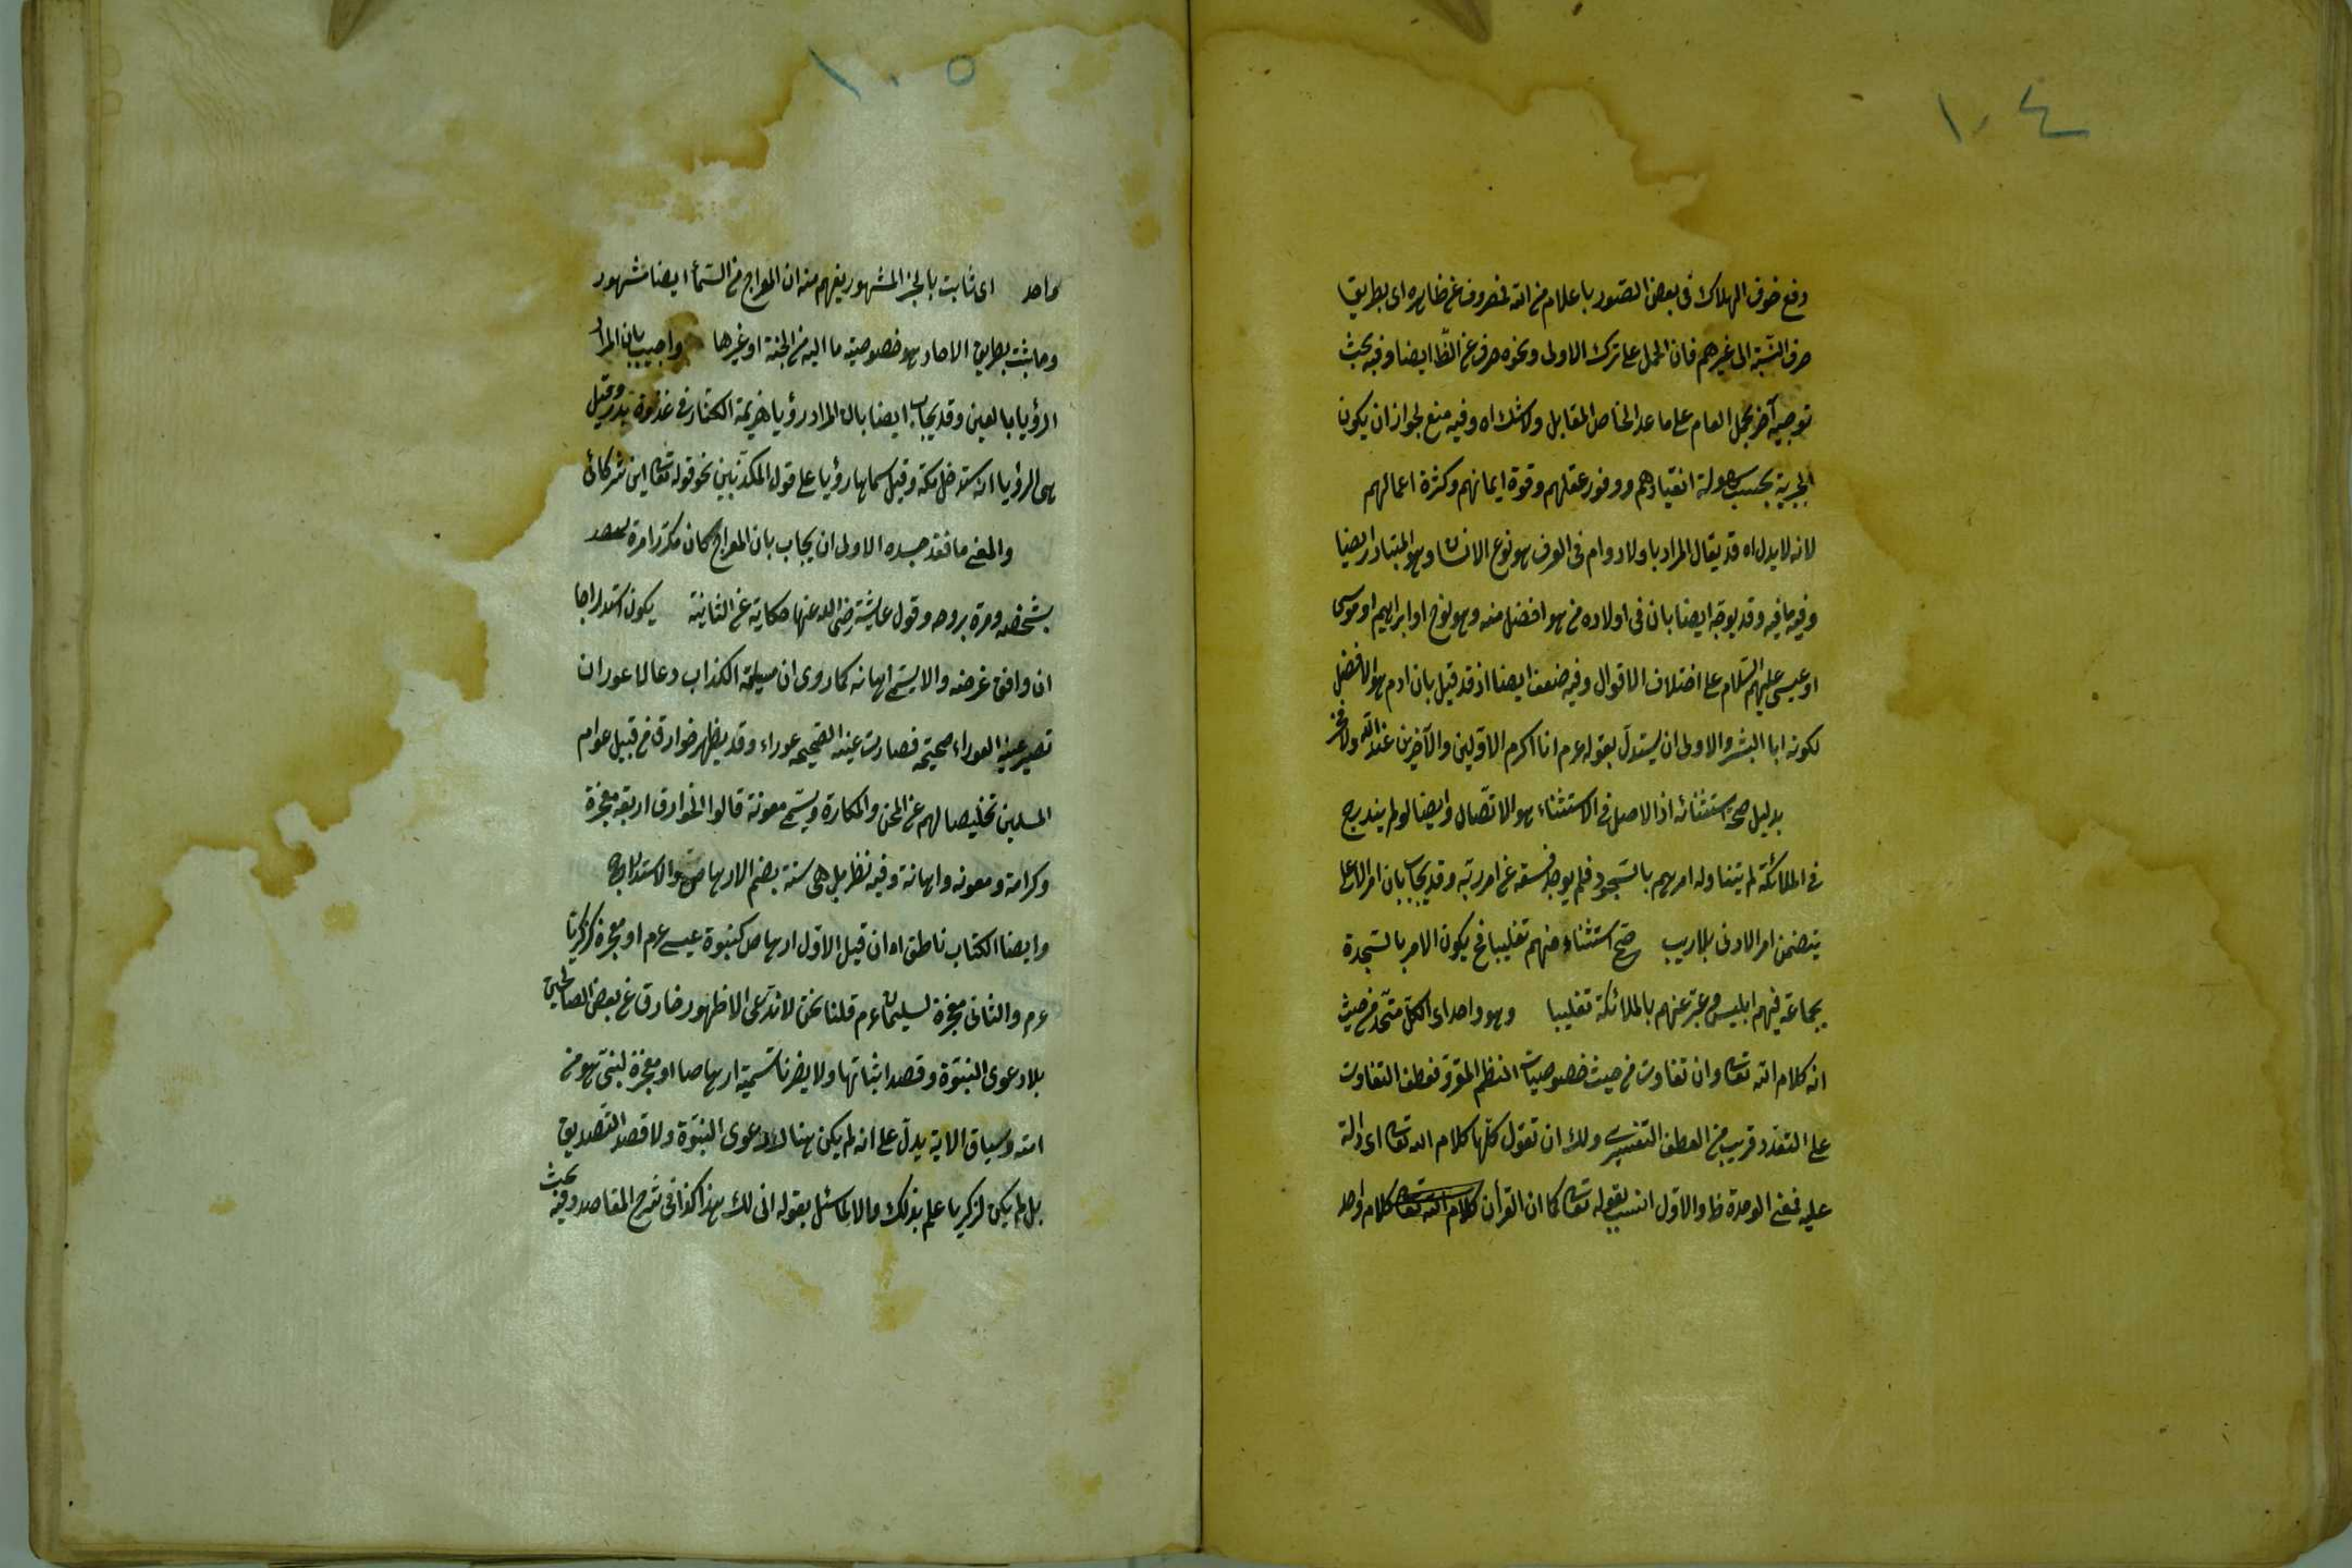 ١٠٤
دفع خوف الهلاك فى بعض الصور باعلام من الله فمصروف عن ظاهره اى بطريق
صرف النسبة الى غيرهم فان الحمل على ترك الاولى ونحوه صرف عن الظا ايضا وفيه بحث
توجيه آخر بحمل العام على ما عدا الخاص المقابل ولا شك اه وفيه منع لجواز ان يكون
الخيرية بحسب سهولة انقيادهم ووفور عقلهم وقوة ايمانهم وكثرة اعمالهم
لانه لا يدل اه قد يقال المراد باولاد ادم فى العرف هو نوع الانسان وهو المتبادر ايضا
وفيه ما فيه وقد يوجه ايضا بان فى اولاده من هو افضل منه وهو نوح او ابراهيم او موسى
او عيسى عليهم السلام على اختلاف الاقوال وفيه ضعف ايضا اذ قد قيل بان ادم هو الافضل
لكونه ابا البشر والاولى ان يستدل بقوله عم انا اكرم الاولين والآخرين عند الله ولا فخر
بدليل صحة استثنائه اذ الاصل فى الاستثناء هو الاتصال وايضا لو لم يندرج
فى الملائكة لم يتناوله امرهم بالسجود فلم يوجد فسقه عن امر ربه وقد يجاب بان امر الاعلى
يتضمن امر الادنى بلا ريب صح استثناؤه منهم تغليبا فح يكون الامر بالسجدة
بجماعة فيهم ابليس وعبر عنهم بالملائكة تغليبا وهو واحد اى الكل متحد من حيث
انه كلام الله تعالى وان تفاوت من حيث خصوصيات النظم المقروّ فعطف التفاوت
على التعدد قريب من العطف التفسيرى ولك ان تقول كلها كلام الله تعالى اى دالة
عليه فمعنى الوحدة ظ والاول انسب بقوله تعالى كما ان القرأن كلام الله تعالى كلام واحد
١٠٥
واحد اى ثابت بالخبر المشهور يفهم منه ان المعراج من السماء ايضا مشهور
وما ثبت بطريق الاحاد هو خصوصية ما اليه من الجنة او غيرها واجيب بان المراد
الرؤيا بالعين وقد يجاب ايضا بان المراد رؤيا هزيمة الكفار فى غزوة بدر وقيل
هى الرؤيا انه ستدخل مكة وقيل سماها رؤيا على قول المكذبين نحو قوله تعالى اين شركائى
والمعنى ما فقد جسده الاولى ان يجاب بان المعراج كان مكررا مرة
بشخصه ومرة بروحه وقول عايشة رضى الله عنها حكاية عن الثانية يكون استدراجا
ان وافق غرضه والا يسمى اهانه كما روى ان مسيلمة الكذاب دعا لاعور ان
تصير عينه العوراء صحيحة فصارت عينه الصحيحه عوراء وقد يظهر خوارق من قبيل عوام
المسلمين تخليصا لهم عن المحن والمكاره ويسمى معونة قالوا الخوارق اربعة معجزة
وكرامة ومعونه واهانة وفيه نظر بل هى ستة بضم الارهاص والاستدراج
وايضا الكتاب ناطق اه ان قيل الاول ارهاص كنبوة عيسى عم او معجزة لزكريا
عم والثانى معجزة لسليمان عم قلنا نحن لا ندعى الا ظهور خارق عن بعض الصالحين
بلا دعوى النبوة وقصد اثباتها ولا يضرنا تسميته ارهاصا او معجزة لنبى هو من
امته وسياق الاية يدل على انه لم يكن هناك دعوى النبوة ولا قصد التصديق
بل لم يكن لزكريا علم بذلك والا لما سئل بقوله انى لك هذا كذا فى شرح المقاصد وفيه بحث